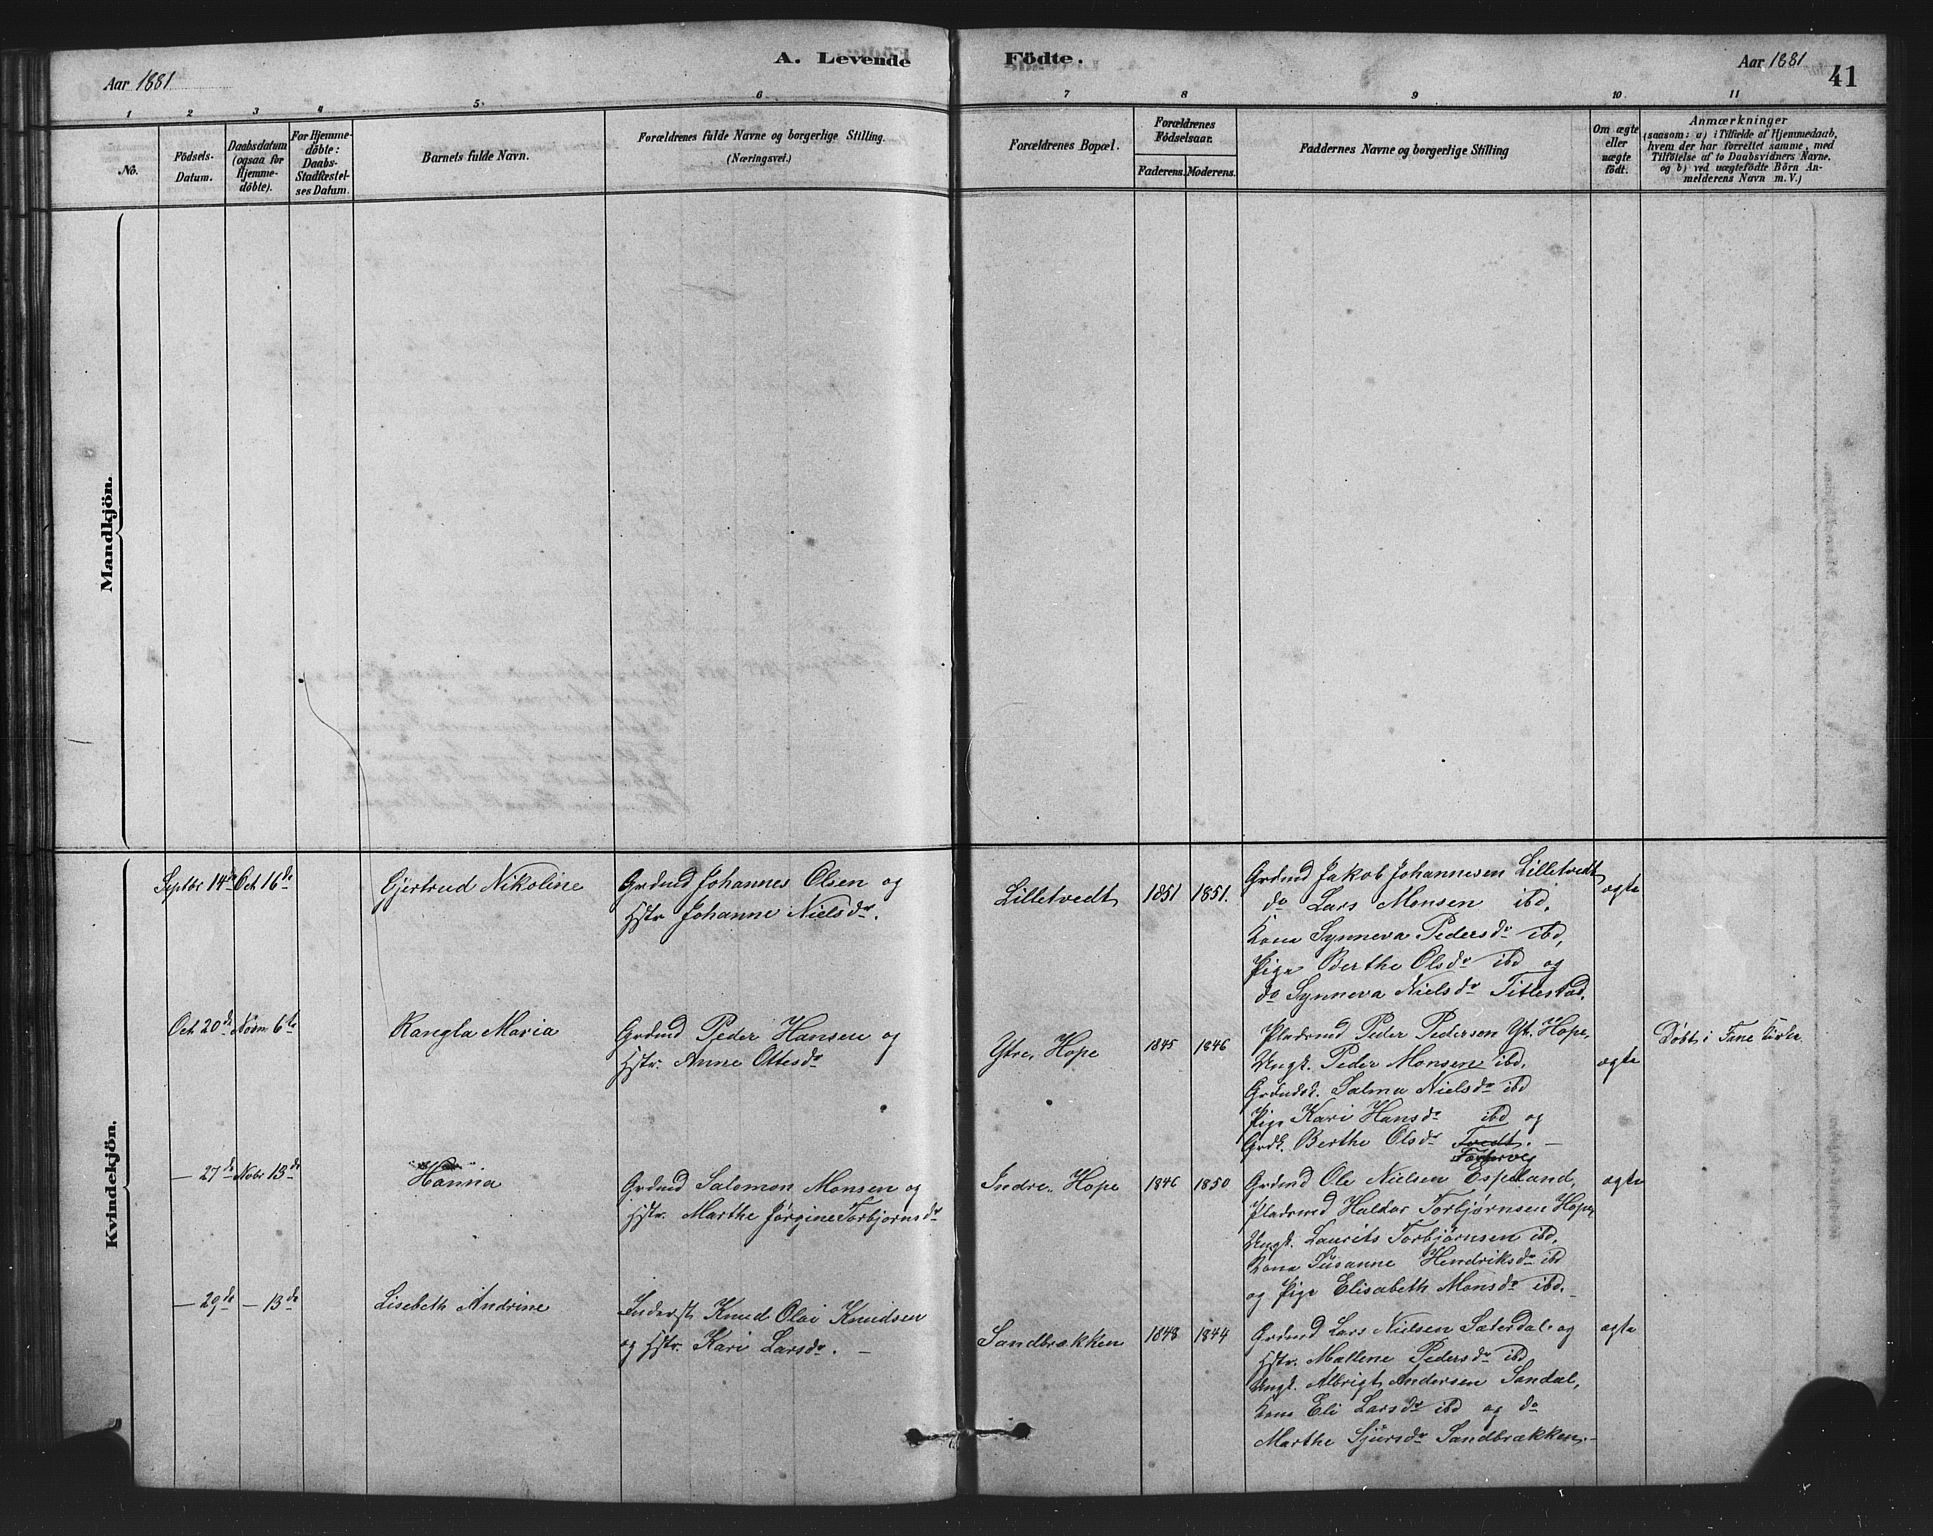 A. Levende Födte.
Aar 1881
Aar 1881
41
1
2
3
4
5.
6
7
8
9
10
11
No.
Födsels-Datum.
Daabsdatum (ogsaa for Hjemme-döbte).
For Hjemme-döbte: Daabs-Stadfæstel-ses Datum.
Barnets fulde Navn.
Forældrenes fulde Navne og borgerlige Stilling.
(Næringsvei.)
Forældrenes Bopæl.
Forældrenes Födselsaar.
Faderens.
Moderens.
Faddernes Navne og borgerlige Stilling
Om ægte eller uægte födt.
Anmærkninger
(saasom: a) i Tilfælde af Hjemmedaab,
hvem der har forrettet samme, med
Tilföielse af to Daabsvidners Navne,
og b) ved uægtefödte Börn An-
melderens Navn m. V.)
Mandkjön.
Kvindekjön.
Septbr 14de Oct 16de
Gjertrud Nikoline
Grdmd Johannes Olsen og
Hstr. Johanne Nielsdr.
Lilletvedt
1851
1851.
Grdmd Jakob Johannesen Lilletvedt
do Lars Monsen ibd.
Kone Synneva Pedersdr ibd,
Pige Berthe Olsdr ibd og
do Synneva Nielsdr Titlestad.
ægte
Oct 20de Novm 6te
Rangla Maria
Grdmd Peder Hansen og
Hstr. Anne Ottesdr
Ytre, Hope
1845
1846
Pladsmd Peder Pederson Yt. Hope,
Ungk. Peder Monsen ibd.
Salma Nielsdr ibd
Pige Kari Hansdr ibd og
Berthe Olsdr Tvedt. —
ægte
Døbt i Fane Kirke.
— 27de Nobr 13de
Hanna
Grdmd Salomon Monsen og
Hstr. Marthe Jørgine Torbjørnsdr
Indre, Hope
1846
1850
Grdmd Ole Nielsen Espeland,
Pladsmd Haldor Torbjørnsen Hope,
Ungk. Laurits Torbjørnsen ibd.
Kone Susanne Hendriksdr ibd
og Pige Elisabeth Monsdr ibd. —
ægte
— 29de — 13de
Lisebeth Andrine
Inderst Knud Olai Knudsen
og Hstr. Kari Larsdr. —
Sandbrækken
1848
1844
Grdmd Lars Nielsen Sælerdal og
Hstr. Mallene Pedersdr ibd
Ungk. Albrigt Andersen Sandal,
Kone Eli Larsdr ibd og do
Marthe Sjursdr Sandbrækken. —
ægte